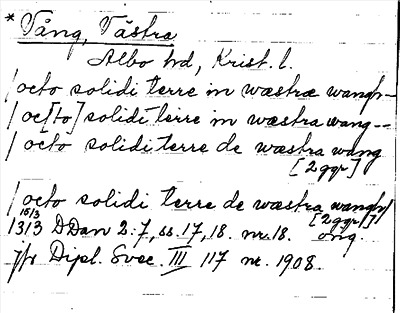 * Vång, Västra
Albo hd, Krist. l.
/ octo solidi terre in wæstræ wangh--
/ oc[to] solidi terre in wæstra wang--
/ octo solidi terre de wæstra wang
[2ggr]
/ octo solidi terre de wæstra wangh/
[2ggr/]
15/3
1313 DDan 2:7, ss. 17, 18. nr. 18. orig.
jfr Dipl. Svec. III 117 nr. 1908.